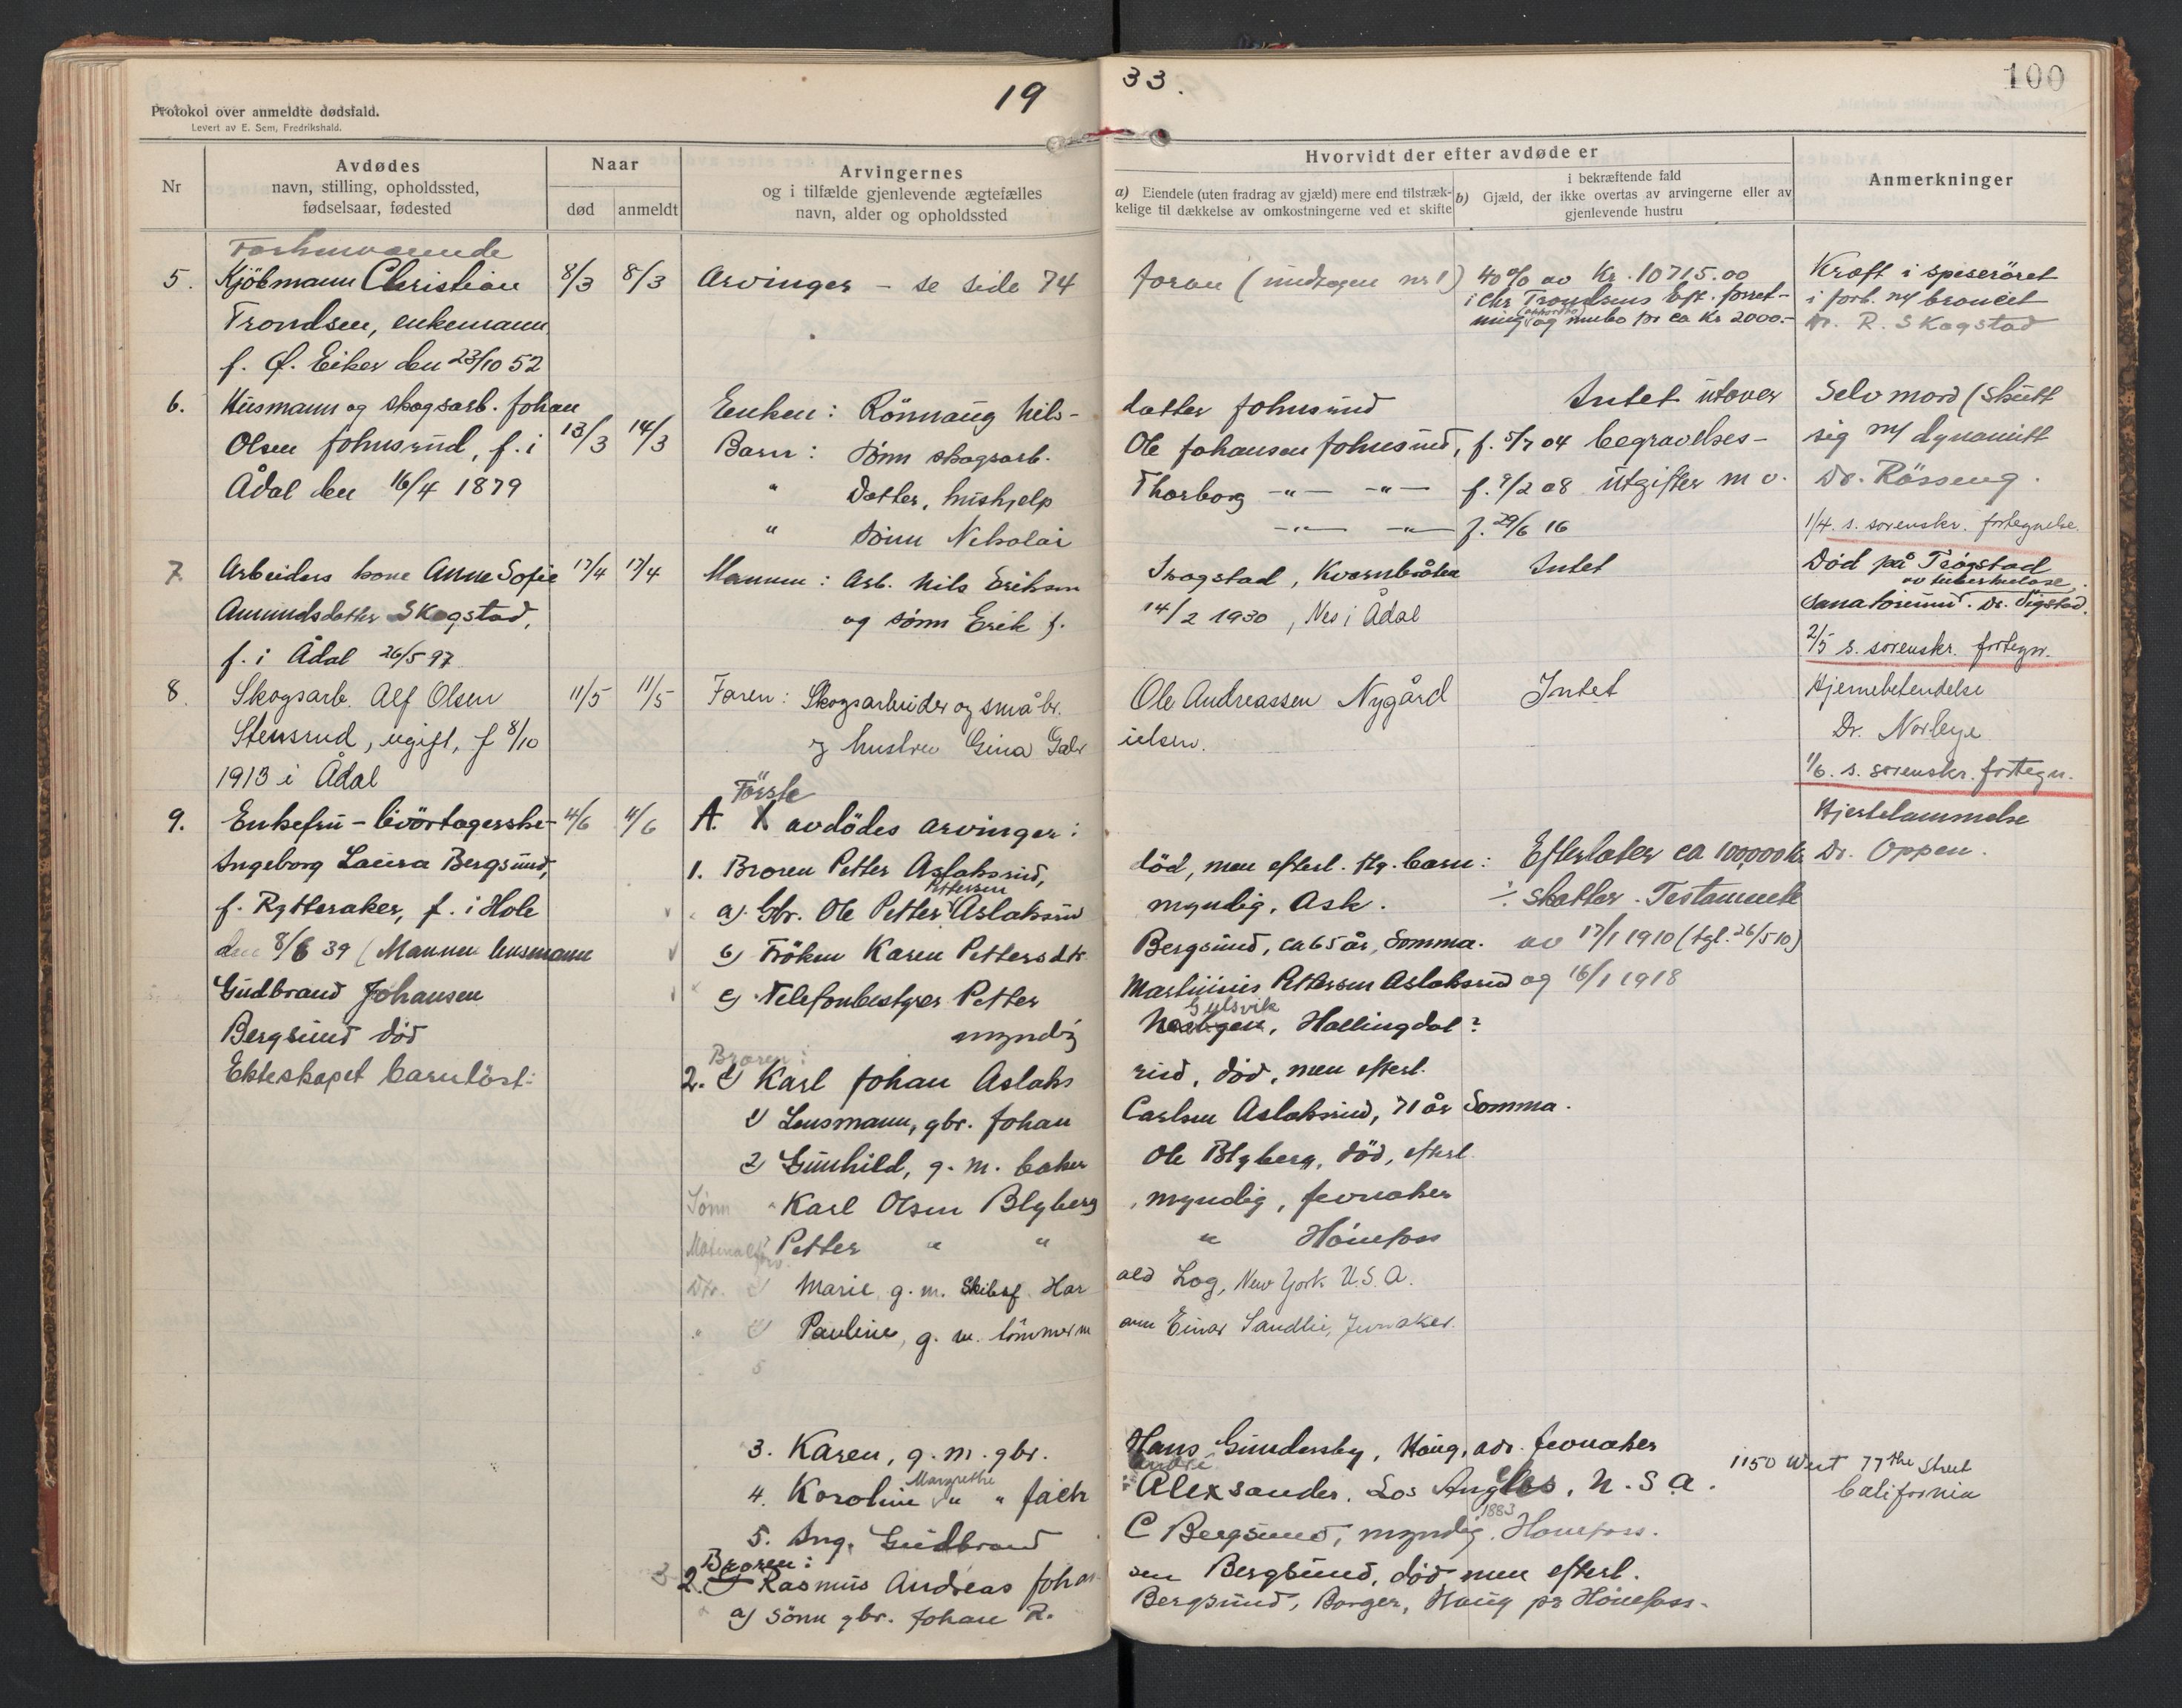 19 33.
100
Protokol over anmeldte dødsfald.
Levert av E. Sem, Fredrikshald.
Nr
Avdødes
navn, stilling, opholdssted,
fødselsaar, fødested
Naar
død
anmeldt
Arvingernes
og i tilfælde gjenlevende ægtefælles
navn, alder og opholdssted
Hvorvidt der efter avdøde er
a) Eiendele (uten fradrag av gjæld) mere end tilstræk-
kelige til dækkelse av omkostningerne ved et skifte
i bekræftende fald
b) Gjæld, der ikke overtas av arvingerne eller av
gjenlevende hustru
Anmerkninger
Forhenværende
5. Kjöbmann Christian 8/3 8/3 Arvinger - se side 74 foran (undtagen nr 1) 40% av Kr. 10715.00 Kræft i spiseröret
Trondsen, enkemann i Chr Trondsens Eft. forret- i forb. m/ broncit
ning og innbo for ca Kr 2000.- Dr. R. Skagstad
f. Ø. Eiker den 23/10 52
6. Husmann og skogsarb. Johan Enken: Rönnaug Nils- datter Johnsrud Intet utover Selvmord (skutt
Olsen Johnsrud, f. i 13/3 14/3 Barn: Sönn skogsarb. Ole Johansen Johnsrud, f. 5/7 04 begravelses- sig m/ dynamitt
Ådal den 16/4 1879 " Datter, hushjelp Thorborg -"- -"- f. 9/2 08 utgifter m v. Dr. Rösseng.
" Sönn Nikolai -"- -"- f. 29/6 16 1/4. s. sorenskr. fortegnelse.
7. Arbeiders kone Anne Sofie 17/4 17/4 Mannen: Arb. Nils Eriksen Skagstad, Kvernbråten Intet Död på Trögstad
av tuberkulose
Amundsdatter Skagstad, og sönn Erik f. 14/2 1930, Nes i Ådal Sanatorium. Dr. Sigstad.
f. i Ådal 26/5 97 2/5 s. sorenskr. fortegn.
8. Skogsarb. Alf Olsen 11/5 11/5 Faren: Skogsarbeider og småbr. Ole Andreassen Nygård Intet Hjernebetendelse
Stensrud, ugift, f 8/10 og hustru Gina Gabr ielsen. Dr. Norbye
1913 i Ådal 1/6. s. sorenskr. fortegn.
Förste
9. Enkefru - livörtagerske 4/6 4/6 A. avdödes arvinger: Hjertelammelse
Ingeborg Laura Bergsund, 1. Broren Petter Aslaksrud, död, men efterl. flg. barn: Efterlater ca 100,000 kr Dr. Oppen.
Pettersen
f. Rytteraker, f. i Hole a) Gbr. Ole Petter Aslaksrud myndig, Ask. ÷ skatter. Testamente
den 8/6 39 (Mannen lensmann b) Fröken Karen Pettersdtr Bergsund, ca 65 år, Somma. av 17/1 1910 (tgl. 26/5 10)
Gudbrand Johansen c) Telefonbestyrer Petter Marthinius Pettersen Aslaksrud og 16/1 1918
Gulsvik
Bergsund död myndig Hallingdal?
Broren:
Ekteskapet barnlöst. 2. Karl Johan Aslaks rud, död, men efterl.
1) Lensmann, gbr. Johan Carlsen Aslaksrud, 71 år Somma.
2) Gunhild, g. m. baker Ole Blyberg, död, efterl.
Sönn Karl Olsen Blyberg, myndig, Jevnaker
Petter " " " Hönefoss
Dtr. Marie, g. m. Skibsf. Har ald Log, New York U.S.A.
" Pauline, g. m. tömmerm ann Einar Sandlie, Jevnaker.
3. Karen, g. m. gbr. Hans Gundersby, Haug, adr. Jevnaker
Margrethe
4. Karoline " " Alexsander, Los Angeles, U. S. A. 1150 West 77the Street
California
1883
5. Ing. Gudbrand C Bergsund, myndig, Hönefoss.
Broren:
2. Rasmus Andreas Johan sen Bergsund, död men efterl.
a) Sönn gbr. Johan R. Bergsund, Borger, Haug pr Hönefoss.